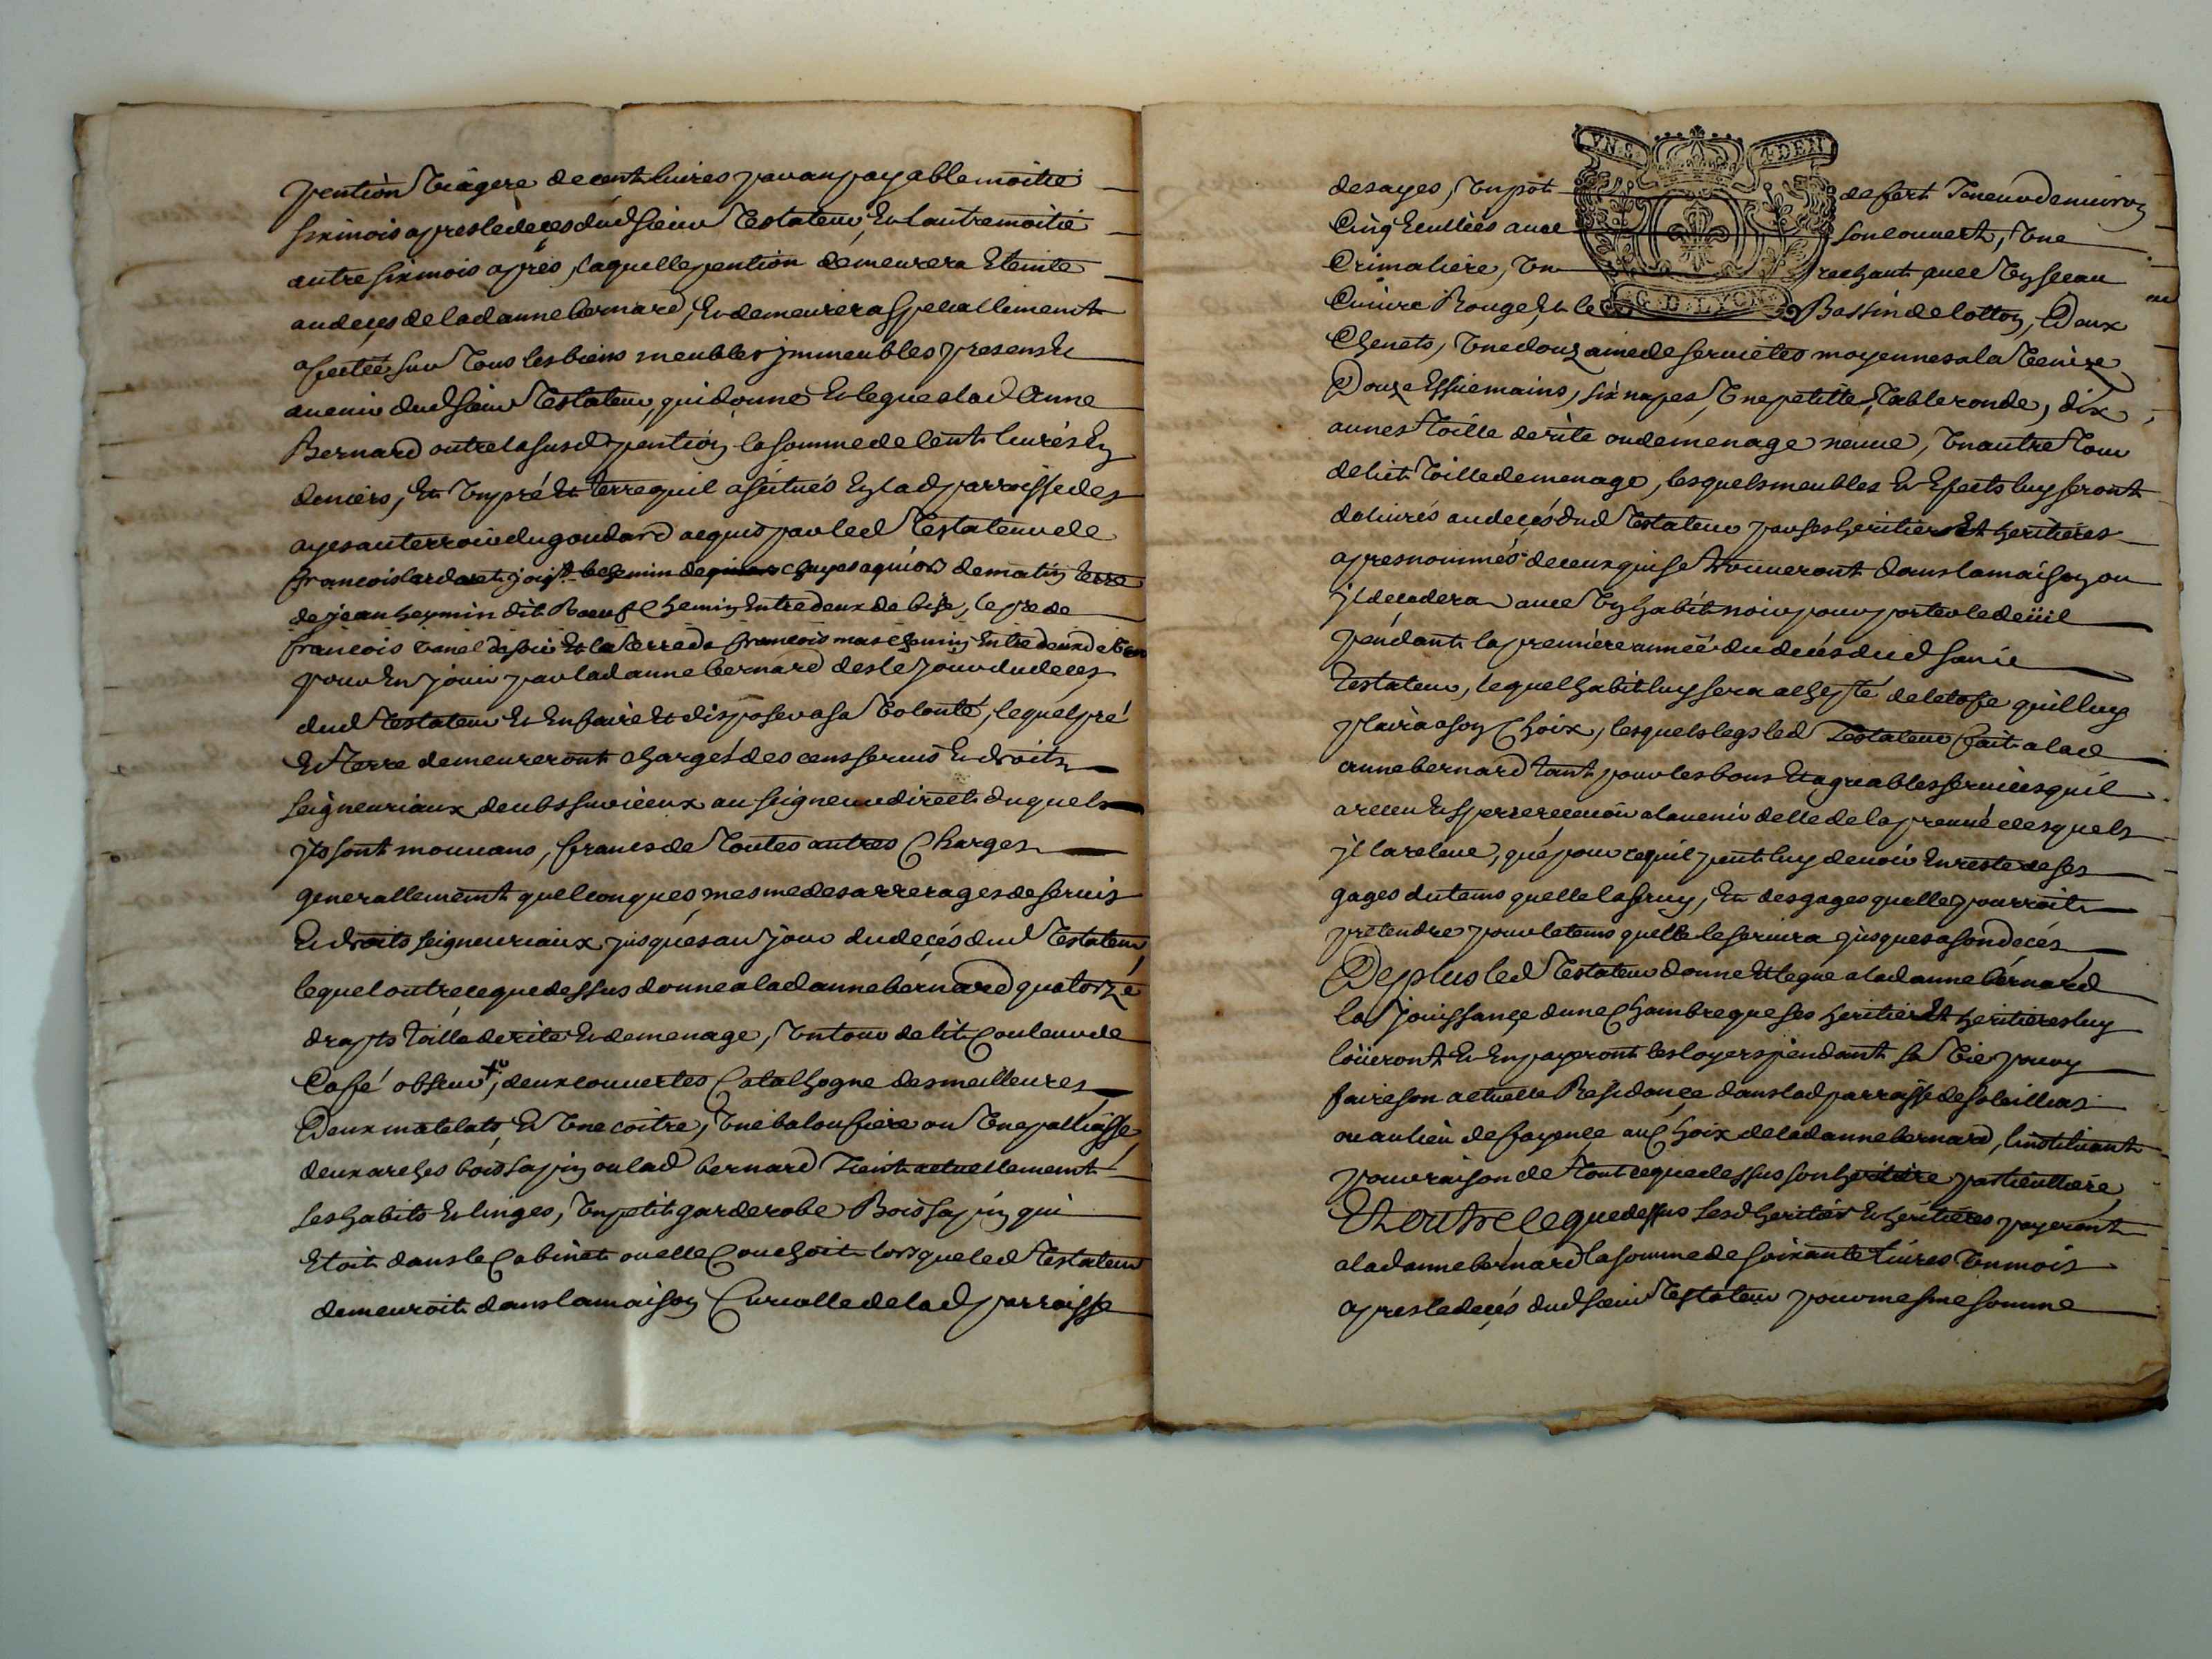 pention viagere de cent livres par an payable moitié
six mois apres le deces dud sieur Testateur, Et lautre moitié
autre six mois après, laquelle pention demeurera Eteinte
au deces de lad anne bernard, Et demeurera specialement
afectée sur tous les biens meubles jmmeubles presens Et
avenir dud sieur Testateur, qui donne Et legue a lad Anne
Bernard outre la susd pention la somme de cent livres En
deniers, Et Un pré Et terre quil a scitués En lad parroisse des
ayes au terroir du goudard acquis par led Testateur de
francois lardaret joigt le chemin de chayes a quiors de matin terre
de jean heymin dit Boeuf chemin Entredeux de bise, le pre de
francois vanel de soir Et la terre de francois mas chemin Entredeux de
pour En jouir par lad anne bernard des le jour du deces
dud Testateur Et En faire Et disposer a sa volonté, lequel pré
Et terre demeureront chargés des cens servis Et droits
seigneuriaux deubs sur iceux au seigneur direct duquel
jls sont mouvans, francs de toutes autres charges
generallement quelconques mesme des arrerages de servis
Et droits seigneuriaux jusques au jour du decés dud Testateur,
lequel outre ce que dessus donne a lad anne bernard quatorze
draps toille de rite Et de menage, Un tour de lit couleur de
Café obscur, deux couvertes Catalhogne des meilleures
Deux matelats, Et Une coitre, Une baloufiere ou Une palliasse,
deux arches bois sapin ou lad bernard tient actuellement
ses habits Et linges, Un petit garderobe Bois sapin qui
Etoit dans le Cabinet ou elle Couchoit lorsque led Testateur
demeuroit dans la maison Curialle de lad parroisse
VN S. 4 DEN
des ayes, Un pot de fert Teneur denviron
Cinq Ecullées avec son couvert, Une
Crimaliere, Un rechaut avec Un sceau
Cuivre Rouge, Et le Bassin de lotton, Deux
G. D. LYON
Chenets, Une douzaine de serviettes moyennes a la Venize
Douze Essuiemains, six napes, Une petitte table ronde, dix
aunes toille de rite ou de menage neuve, Un autre tour
de lict toille de menage, lesquels meubles Et Efects luy seront
delivrés au decés dud Testateur par ses heritiers Et heritieres
apres nommés de ceux qui se trouveront dans la maison ou
jl decedera avec Un habit noir pour porter le deüil
pendant la premiere année du decés dud sieur
Testateur, lequel habit luy sera achepté de letofe quil luy
plaira a son Choix, lesquels legs led Testateur fait a lad
anne bernard tant pour les bons Et agreables services quil
a receu Et sperre recevoir a lavenir delle de la preuve desquels
jl la releve, que pour ce quil peut luy devoir En reste de ses
gages du tems quelle la servy, Et des gages quelle pourroit
pretendre pour le tems quelle le servira jusques a son decés
De plus led Testateur donne Et legue a lad anne bernard
la jouissance dune Chambre que ses heritiers Et heritieres luy
loüeront Et En payeront les loyers pendant sa vie pour y
faire son actuelle Residance dans lad parroisse de soleillias
ou au lieu de fayence au Choix de lad anne bernard, linstituant
pour raison de tout ce que dessus son heritiere particulliere,
Et outre ce que dessus sesd heritiers Et heritieres payeront
a lad anne bernard la somme de soixante livres Un mois
apres le decés dud sieur Testateur pour mesme somme